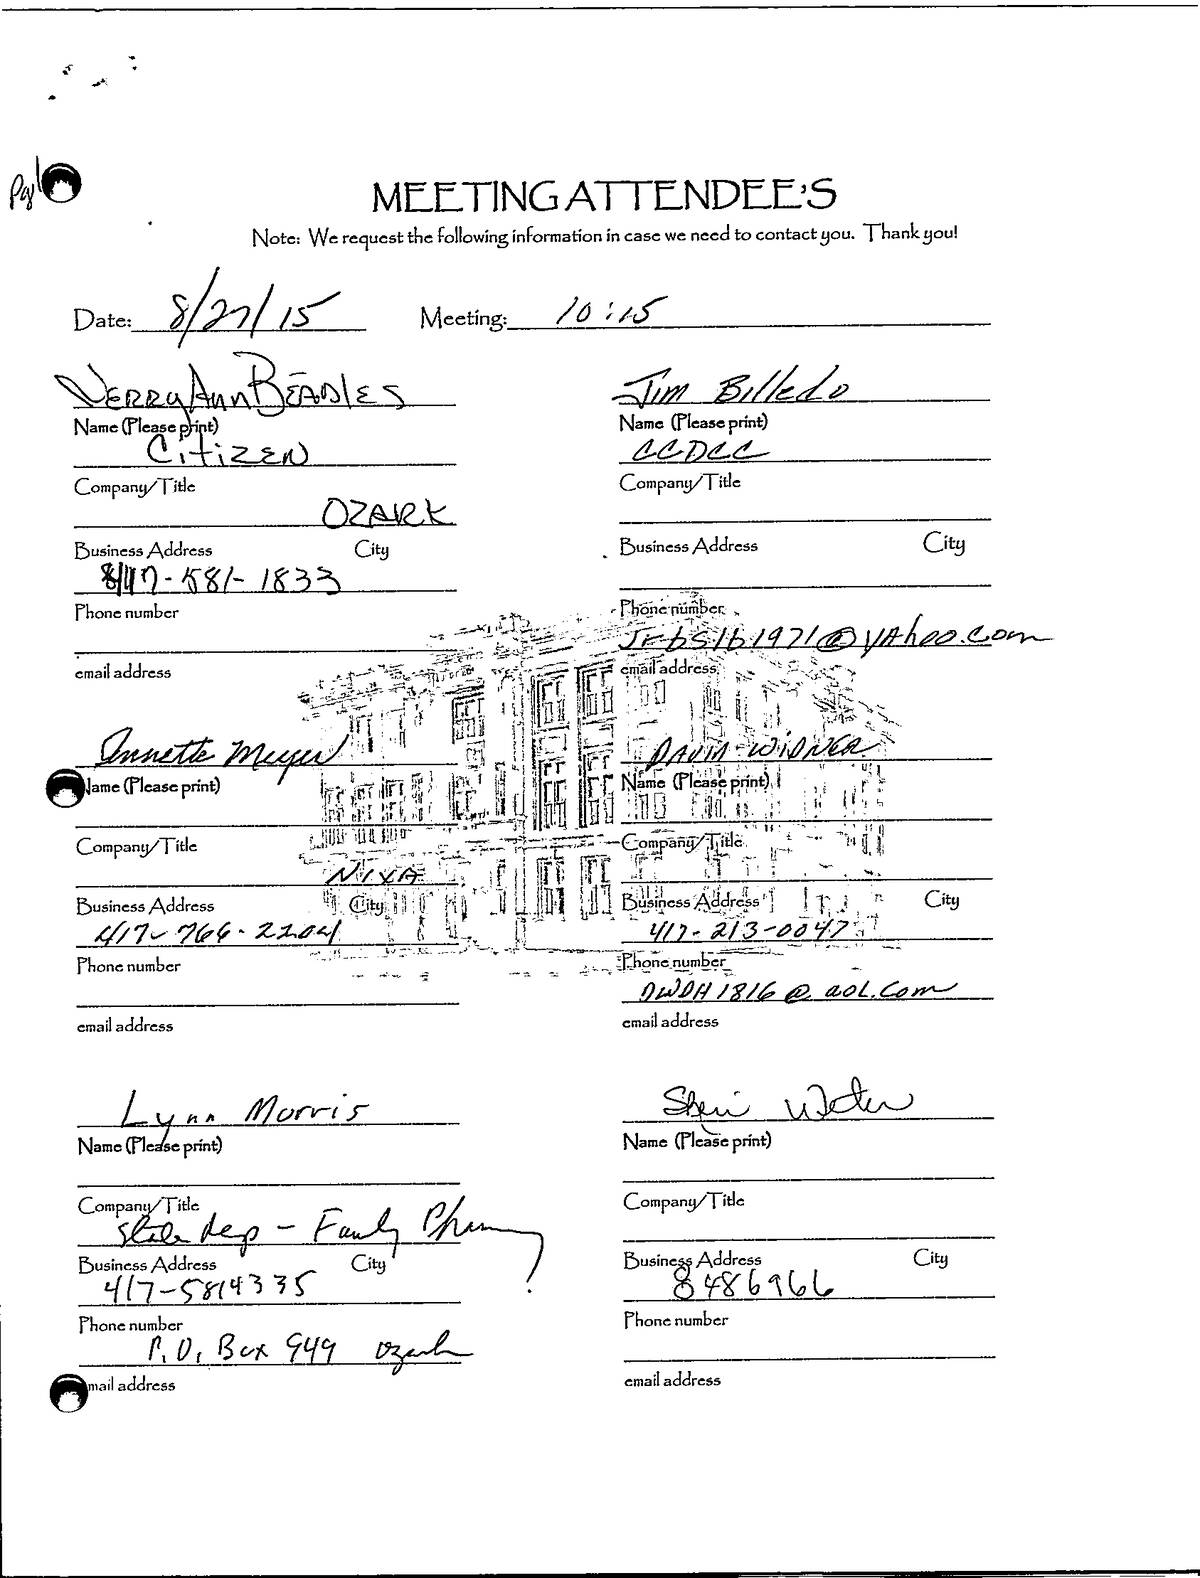 Pg 1
MEETING ATTENDEE'S
Note: We request the following information in case we need to contact you. Thank you!
Date: 8/27/15 Meeting: 10:15
Ann Beadles
Name (Please print)
Citizen
Company/Title
OZARK
Business Address City
417-581-1833
Phone number
email address
Jim Billedo
Name (Please print)
CCDCC
Company/Title
Business Address City
Phone number
Jrbsib1971@yahoo.com
email address
Annette Meyer
Name (Please print)
Company/Title
NIXA
Business Address City
417-766-2204
Phone number
email address
DAVID WIDNER
Name (Please print)
Company/Title
Business Address City
417-213-0047
Phone number
DWDH1816@aol.com
email address
Lynn Morris
Name (Please print)
Company/Title
State Rep - Family Pharmacy
Business Address City
417-5814335
Phone number
P.O. Box 949 Ozark
mail address
Sheri
Name (Please print)
Company/Title
Business Address City
8486966
Phone number
email address